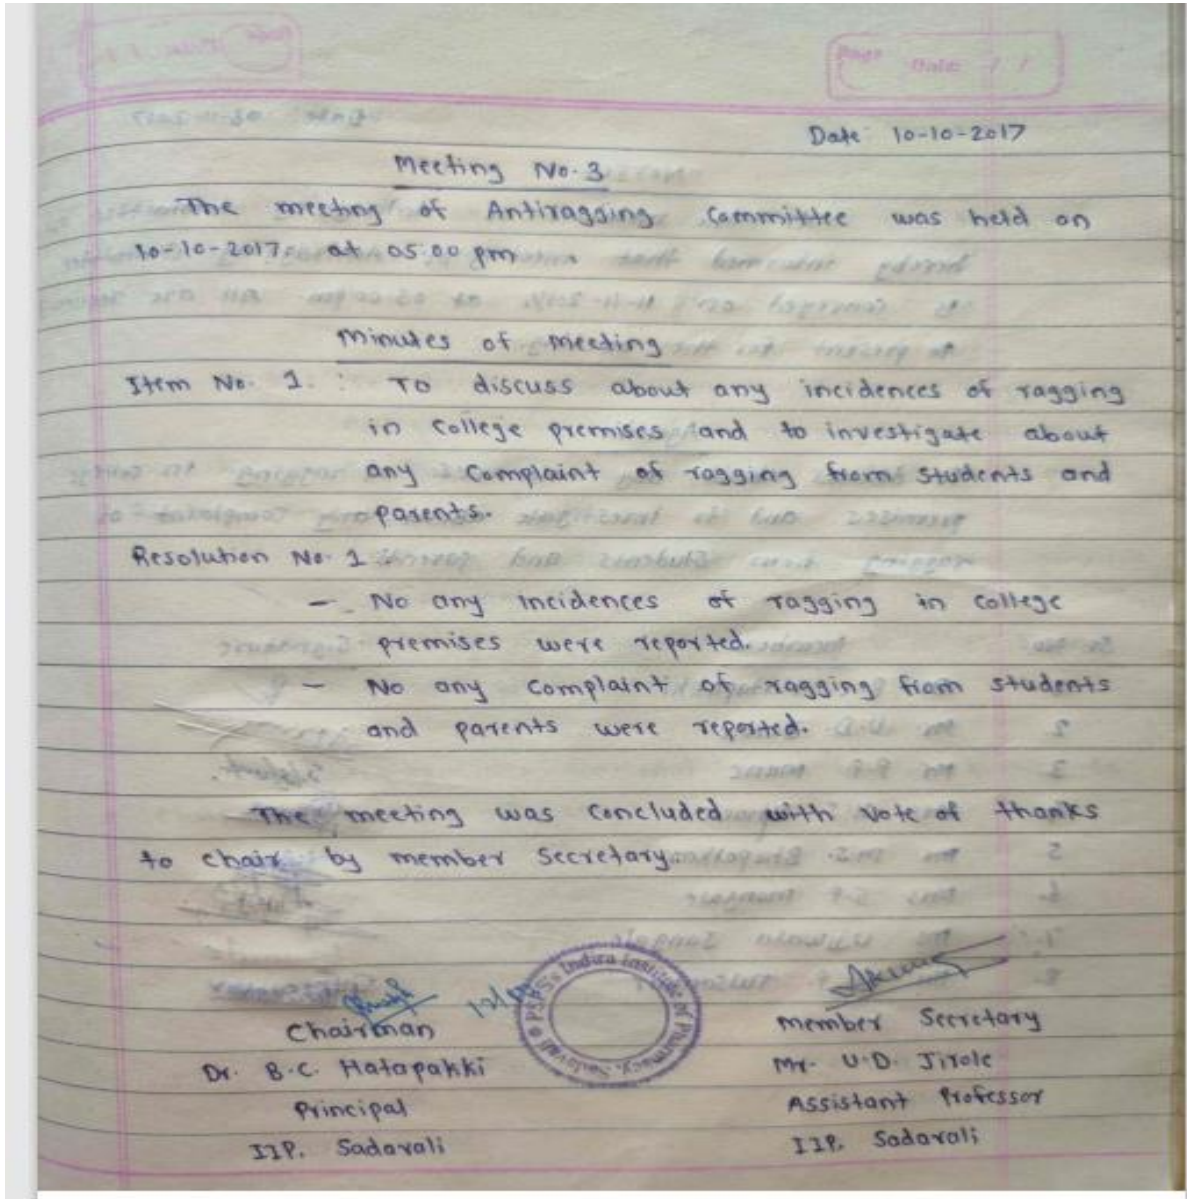 Page Date: / /
Date: 10-10-2017
Meeting No. 3
The meeting of Antiragging Committee was held on
10-10-2017 at 05.00 pm
Minutes of meeting
Item No. 1. : To discuss about any incidences of ragging
in College premises and to investigate about
any Complaint of ragging from students and
parents.
Resolution No. 1
- No any incidences of ragging in College
premises were reported.
- No any Complaint of ragging from students
and parents were reported.
The meeting was Concluded with Vote of thanks
to Chair by member Secretary.
PSPS's Indira Institute of Pharmacy, Sadavali
Chairman
Member Secretary
Dr. B.C. Hatapakki
Mr. U.D. Jirole
Principal
Assistant Professor
IIP, Sadavali
IIP, Sadavali